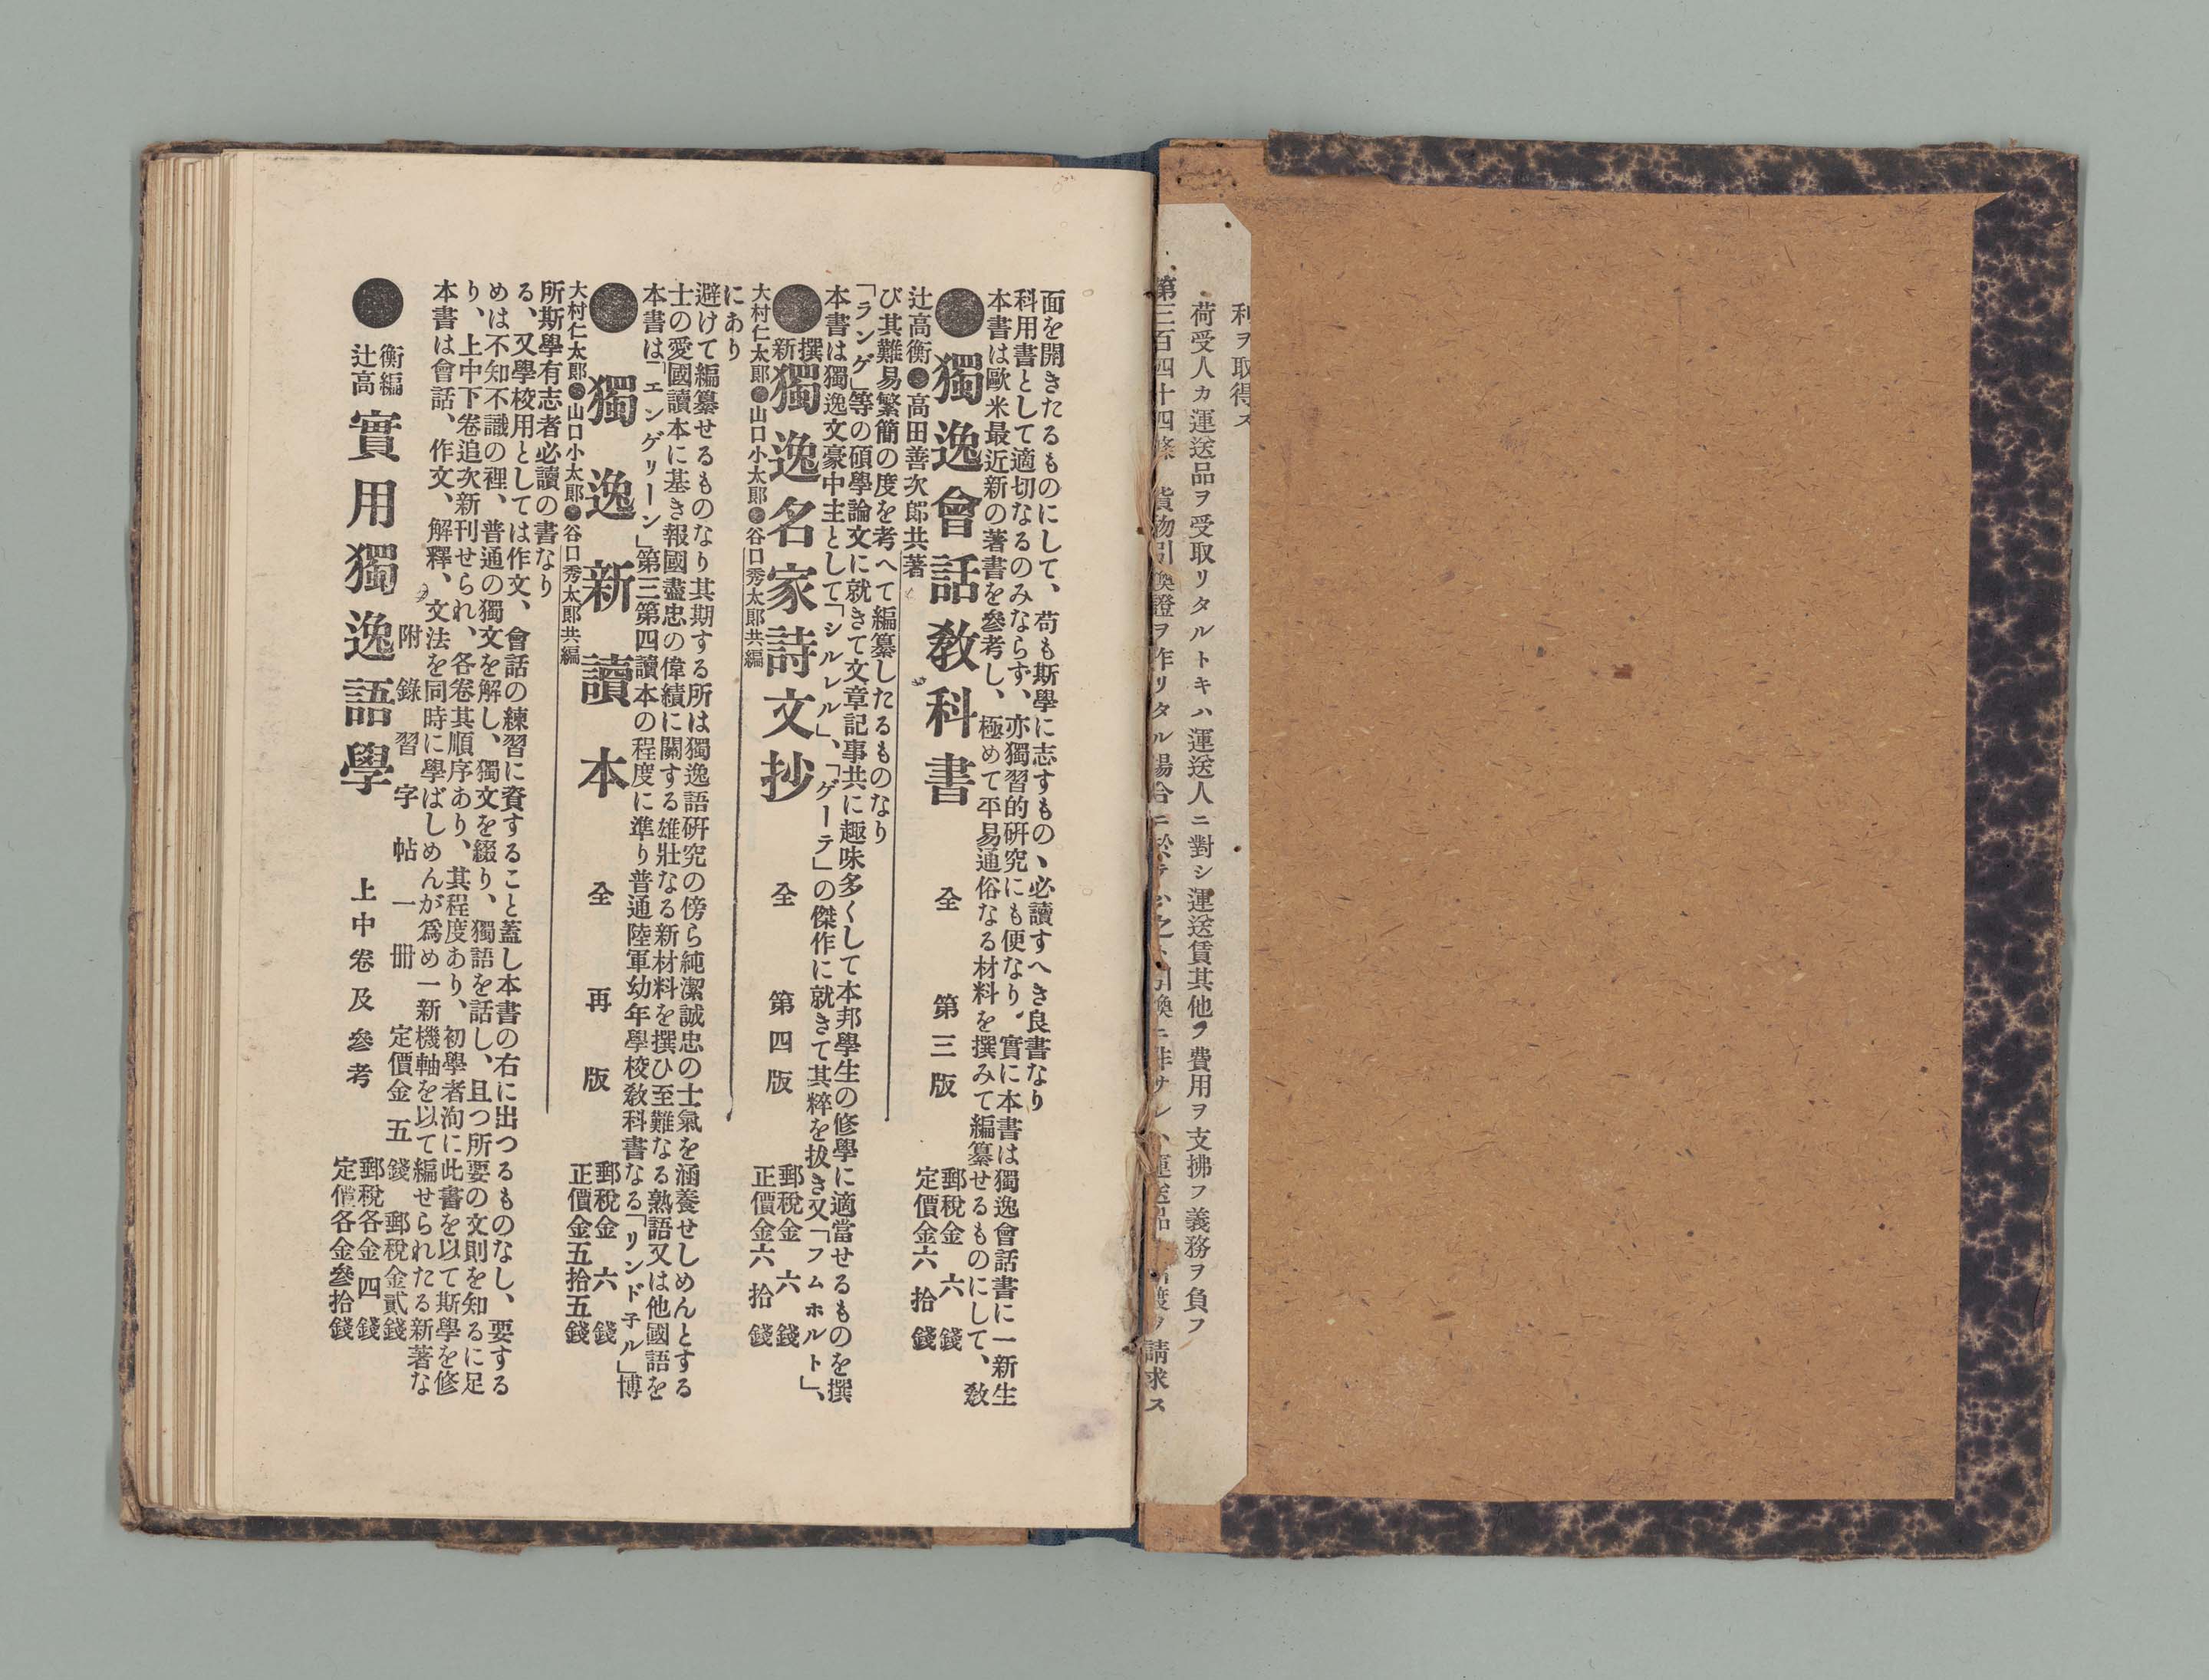 ●辻高衡編 實用獨逸語學 上中卷及參考 定價各金參拾錢 郵稅各金四錢
附錄習字帖一冊 定價金五錢 郵稅金貳錢
本書は會話、作文、解釋、文法を同時に學ばしめんが爲め一新機軸を以て編せられたる新著な
り、上中下卷追次新刊せられ、各卷其順序あり、其程度あり、初學者洵に此書を以て斯學を修
めは不知不識の裡、普通の獨文を解し、獨文を綴り、獨語を話し、且つ所要の文則を知るに足
る、又學校用としては作文、會話の練習に資すること蓋し本書の右に出つるものなし、要する
所斯學有志者必讀の書なり
大村仁太郎●山口小太郎●谷口秀太郎共編
●獨逸新讀本 全 再版 正價金五拾五錢 郵稅金六錢
本書は「エンゲリーン」第三第四讀本の程度に準り普通陸軍幼年學校敎科書なる「リンド子ル」博
士の愛國讀本に基き報國盡忠の偉績に關する雄壯なる新材料を撰ひ至難なる熟語又は他國語を
避けて編纂せるものなり其期する所は獨逸語硏究の傍ら純潔誠忠の士氣を涵養せしめんとする
にあり
大村仁太郎●山口小太郎●谷口秀太郎共編
●新撰獨逸名家詩文抄 全 第四版 正價金六拾錢 郵稅金六錢
本書は獨逸文豪中主として「シルレル」、「ゲーテ」の傑作に就きて其粹を拔き又「フムホルト」、
「ランゲ」等の碩學論文に就きて文章記事共に趣味多くして本邦學生の修學に適當せるものを撰
び其難易繁簡の度を考へて編纂したるものなり
辻高衡●高田善次郎共著
●獨逸會話敎科書 全 第三版 定價金六拾錢 郵稅金六錢
本書は歐米最近新の著書を參考し、極めて平易通俗なる材料を撰みて編纂せるものにして、敎
科用書として適切なるのみならず、亦獨習的硏究にも便なり。實に本書は獨逸會話書に一新生
面を開きたるものにして、苟も斯學に志すもの、必讀すへき良書なり
利ヲ取得ス
荷受人カ運送品ヲ受取リタルトキハ運送人ニ對シ運送賃其他ノ費用ヲ支拂フ義務ヲ負フ
第三百四十四條 貨物引換證ヲ作リタル場合ニ於テハ之ト引換ニ非サレハ運送品ノ引渡ヲ請求ス